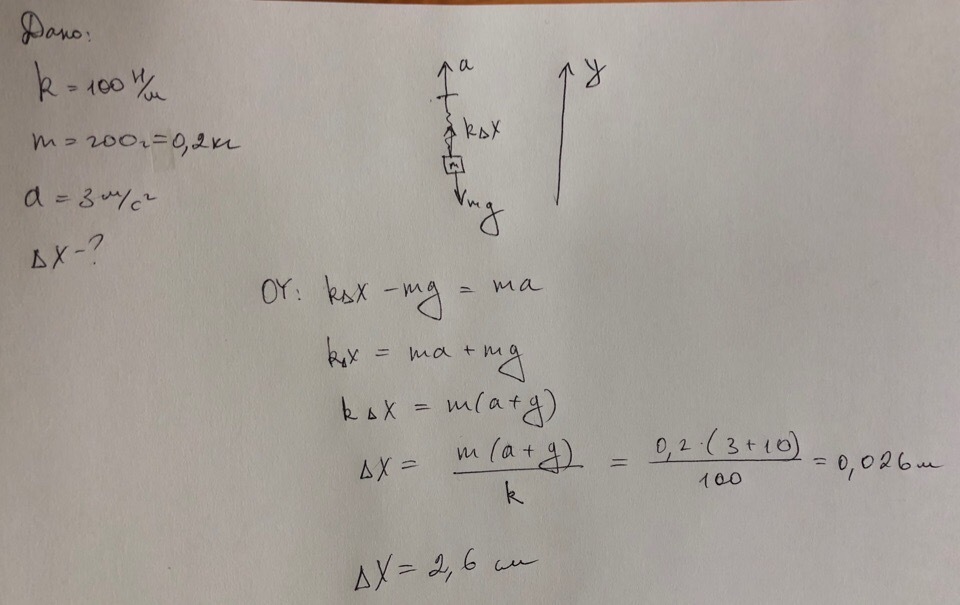 Дано:
k = 100 Н/м
m = 200г = 0,2 кг
a = 3 м/с²
ΔX - ?
a
kΔX
m
mg
y
OY: kΔX - mg = ma
kΔX = ma + mg
kΔX = m(a+g)
ΔX = m(a+g)/k = 0,2·(3+10)/100 = 0,026 м
ΔX = 2,6 см